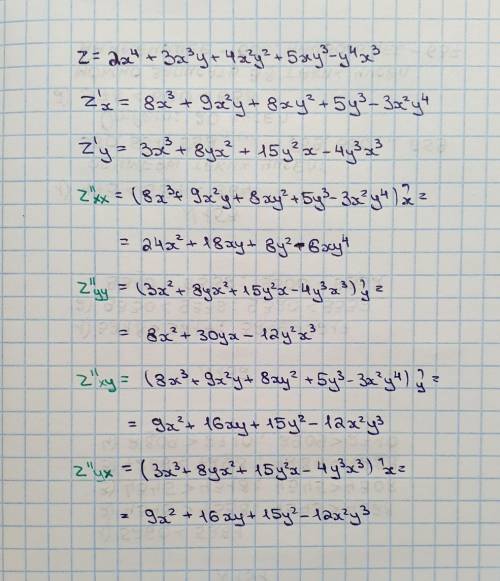 z = 2x⁴ + 3x³y + 4x²y² + 5xy³ - y⁴x³
z'x = 8x³ + 9x²y + 8xy² + 5y³ - 3x²y⁴
z'y = 3x³ + 8yx² + 15y²x - 4y³x³
z''xx = (8x³ + 9x²y + 8xy² + 5y³ - 3x²y⁴)'x =
= 24x² + 18xy + 8y² - 6xy⁴
z''yy = (3x² + 8yx² + 15y²x - 4y³x³)'y =
= 8x² + 30yx - 12y²x³
z''xy = (8x³ + 9x²y + 8xy² + 5y³ - 3x²y⁴)'y =
= 9x² + 16xy + 15y² - 12x²y³
z''yx = (3x³ + 8yx² + 15y²x - 4y³x³)'x =
= 9x² + 16xy + 15y² - 12x²y³